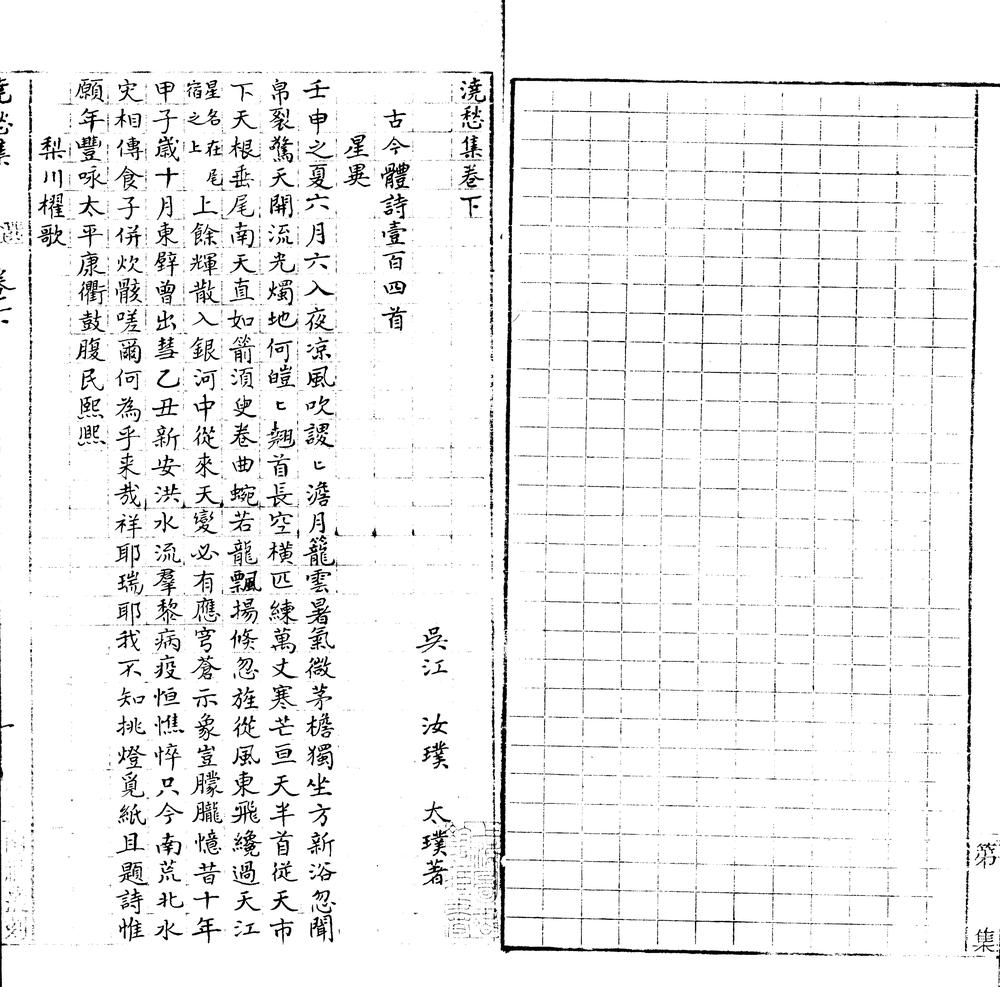 澆愁集卷下
吳江 汝璞 太璞著
古今體詩壹百四首
星異
壬申之夏六月六入夜凉風吹謖〻澹月籠雲暑氣微茅檐獨坐方新浴忽聞
帛裂驚天開流光燭地何皚〻翹首長空橫匹練萬丈寒芒亘天半首從天市
下天根垂尾南天直如箭須臾卷曲蜿若龍飄揚倏忽旌從風東飛纔過天江
星名在尾宿之上上餘輝散入銀河中從來天變必有應穹蒼示象豈朦朧憶昔十年
甲子歲十月東壁曾出彗乙丑新安洪水流羣黎病疫恒憔悴只今南荒北水
灾相傳食子併炊骸嗟爾何為乎来哉祥耶瑞耶我不知挑燈覓紙且題詩惟
願年豐咏太平康衢鼓腹民熙熙
梨川櫂歌
第 集